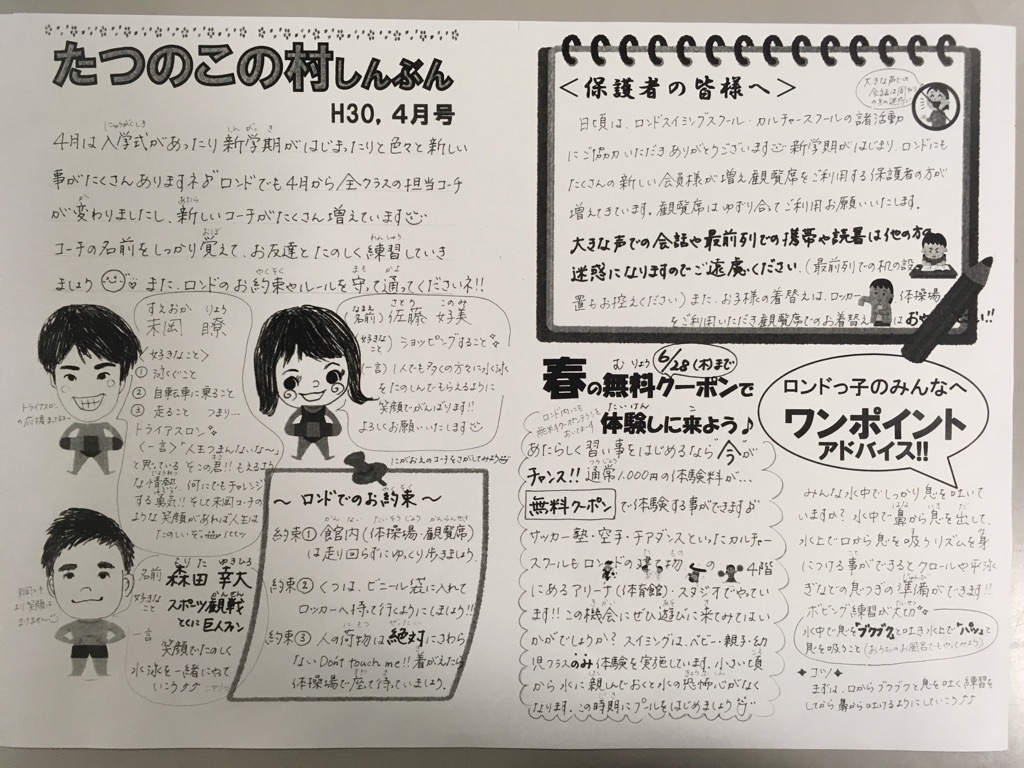 たつのこの村しんぶん
H30, 4月号
4月は入学式があったり新学期がはじまったりと色々と新しい
事がたくさんありますネ♪ロンドでも4月から全クラスの担当コーチ
が変わりましたし、新しいコーチがたくさん増えています
コーチの名前をしっかり覚えて、お友達とたのしく練習していき
ましょう また、ロンドのお約束やルールを守って通ってくださいネ!!
すえおか りょう
末岡 瞭
<好きなこと>
① 泳ぐこと
② 自転車に乗ること
③ 走ること つまり…
トライアスロン
<一言>"人生つまんないな~"
と思っているそこの君!! もえるよう
な情熱、何にでもチャレンジ
する勇気!! そして末岡コーチの
ような笑顔があれば人生は
たのしいぞ
さとう このみ
(名前) 佐藤 好美
(好きなこと) ショッピングすること
(一言) 1人でも多くの方々に水泳
をたのしんでもらえるように
笑顔でがんばります!!
よろしくお願いいたします
にがおえのコーチをさがしてみよう
もりた ゆきひろ
名前 森田 幸大
好きなこと スポーツ観戦
とくに巨人ファン
一言
笑顔でたのしく
水泳を一緒にやって
いこう
~ ロンドでのお約束 ~
約束① 館内(体操場・観覧席)
は走り回らずにゆっくり歩きましょう
約束② くつは、ビニール袋に入れて
ロッカーへ持って行くようにしましょう!!
約束③ 人の荷物は絶対にさわら
ない Don't touch me!! 着がえたら
体操場で座って待っていましょう。
<保護者の皆様へ>
大きな声での
会話は周り
の方の迷惑
日頃は、ロンドスイミングスクール・カルチャースクールの諸活動
にご協力いただきありがとうございます 新学期がはじまり、ロンドにも
たくさんの新しい会員様が増え観覧席をご利用する保護者の方が
増えてきています。観覧席はゆずり合ってご利用お願いいたします。
大きな声での会話や最前列での携帯や読書は他の方の
迷惑になりますのでご遠慮ください。(最前列での机の設
置もお控えください) また、お子様の着替えは、ロッカー、体操場
をご利用いただき観覧席でのお着替えは
春の無料クーポンで
むりょう
6/28(木)まで
たいけん
体験しに来よう♪
ロンド内にも
無料クーポンチラシを
おいてます
あたらしく習い事をはじめるなら"今"が
チャンス!! 通常1,000円の体験料が…
無料クーポン で体験する事ができます
サッカー塾・空手・チアダンスといったカルチャー
スクールもロンドの建物の4階
にあるアリーナ(体育館)・スタジオでやってい
ます!! この機会にぜひ遊びに来てみてはい
かがでしょうか? スイミングは、ベビー・親子・幼
児クラスのみ体験を実施しています。小さい頃
から水に親しんでおくと水の恐怖心がなく
なります。この時期にプールをはじめましょう
ロンドっ子のみんなへ
ワンポイント
アドバイス!!
みんな水中でしっかり息を吐いて
いますか? 水中で鼻から息を出して、
水上で口から息を吸うリズムを身
につける事ができるとクロールや平泳
ぎなどの息つぎの準備ができます!!
ボビング練習が大切
水中で息をブクブクと吐き水上で"パッ"と
息を吸うこと(おうちのお風呂でもやってみよう)
✦コツ✦
まずは、口からブクブクと息を吐く練習を
してから鼻から吐けるようにしていこう